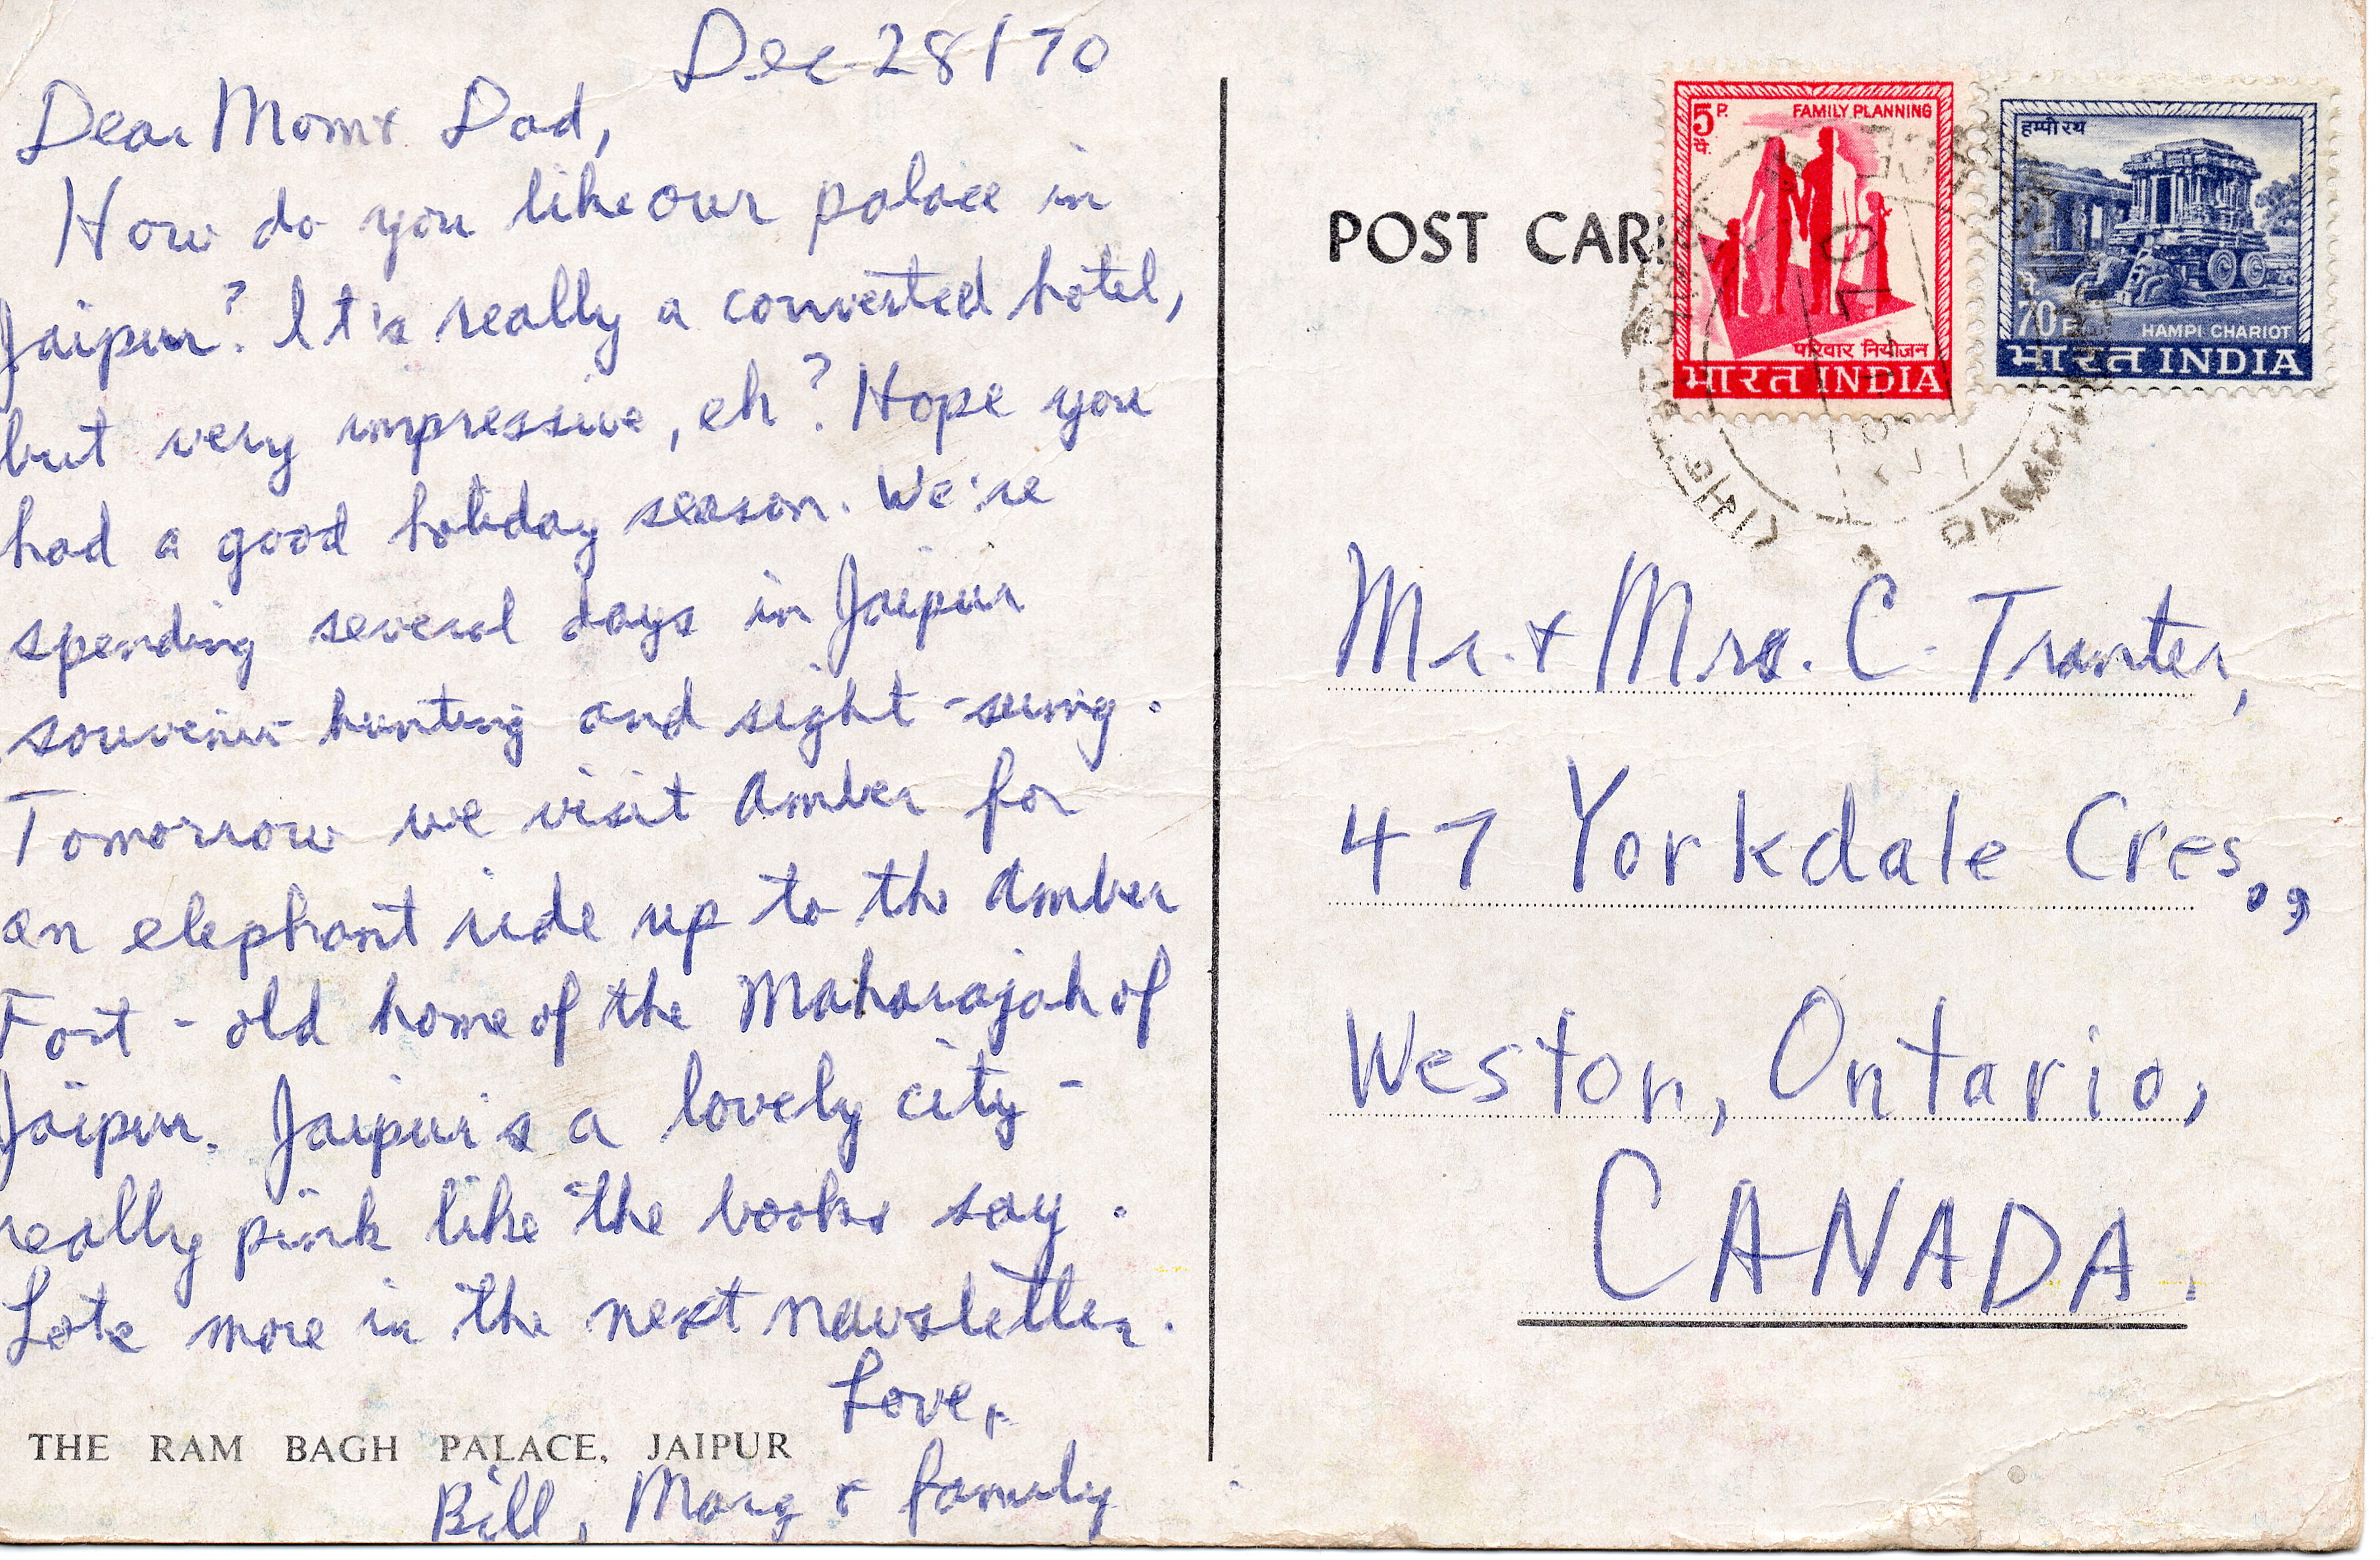 Dec 28/70
Dear Mom & Dad,
How do you like our palace in
Jaipur? It's really a converted hotel,
but very impressive, eh? Hope you
had a good holiday season. We're
spending several days in Jaipur
souvenir hunting and sight-seeing.
Tomorrow we visit Amber for
an elephant ride up to the Amber
Fort - old home of the Maharajah of
Jaipur. Jaipur is a lovely city -
really pink like the books say.
Lots more in the next newsletter.
Love,
THE RAM BAGH PALACE, JAIPUR
Bill, Marg & family
POST CAR
5 P.
पै.
FAMILY PLANNING
परिवार नियोजन
भारत INDIA
हम्पी रथ
70 P
HAMPI CHARIOT
भारत INDIA
Mr. & Mrs. C. Tranter,
47 Yorkdale Cres.,
Weston, Ontario,
CANADA.